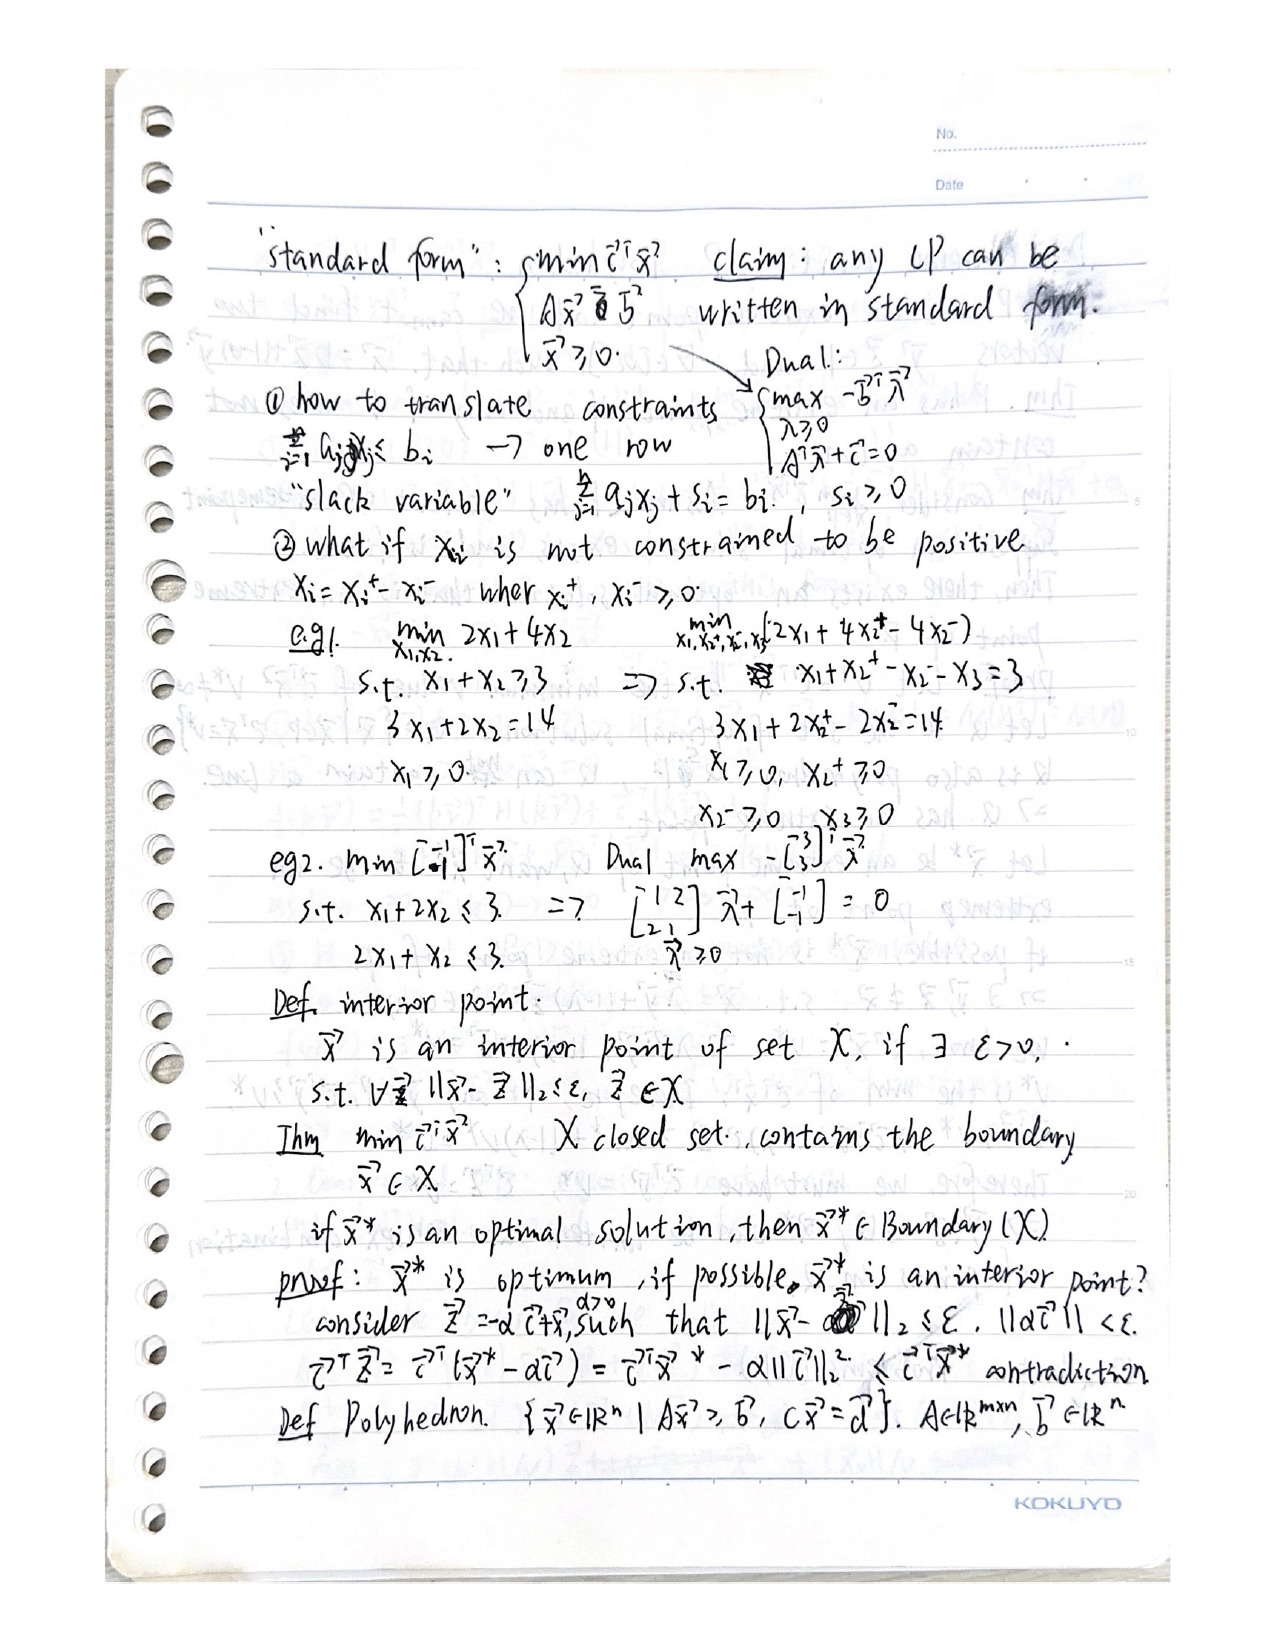 No.
Date
"standard form": { min c⃗ᵀx⃗ claim: any LP can be
Ax⃗ = b⃗ written in standard form.
x⃗ ≥ 0.
Dual:
① how to translate constraints { max -b⃗ᵀλ⃗
λ ≥ 0
Σ aⱼxⱼ ≤ bᵢ → one row Aᵀλ⃗ + c⃗ = 0
"slack variable" Σⁿⱼ₌₁ aⱼxⱼ + sᵢ = bᵢ, sᵢ ≥ 0
② what if xᵢ is not constrained to be positive
xᵢ = xᵢ⁺ - xᵢ⁻ wher xᵢ⁺, xᵢ⁻ ≥ 0
e.g1. min x₁,x₂. 2x₁ + 4x₂ min x₁,x₂⁺,x₂⁻,x₃ (2x₁ + 4x₂⁺ - 4x₂⁻)
s.t. x₁ + x₂ ≥ 3 => s.t. x₁ + x₂⁺ - x₂⁻ - x₃ = 3
3x₁ + 2x₂ = 14 3x₁ + 2x₂⁺ - 2x₂⁻ = 14
x₁ ≥ 0. x₁ ≥ 0, x₂⁺ ≥ 0
x₂⁻ ≥ 0 x₃ ≥ 0
eg2. min [-1 -1]ᵀ x⃗ Dual max -[3 3]ᵀ λ⃗
s.t. x₁ + 2x₂ ≤ 3. => [1 2 2 1] λ⃗ + [-1 -1] = 0
2x₁ + x₂ ≤ 3. λ⃗ ≥ 0
Def. interior point.
x⃗ is an interior point of set X, if ∃ ε > 0,
s.t. ∀ z⃗ ||x⃗ - z⃗||₂ ≤ ε, z⃗ ∈ X
Thm min c⃗ᵀx⃗ X closed set. contains the boundary
x⃗ ∈ X
if x⃗* is an optimal solution, then x⃗* ∈ Boundary (X)
proof: x⃗* is optimum, if possible. x⃗* is an interior point?
consider z⃗ = -αc⃗ + x⃗, α>0 such that ||x⃗ - z⃗||₂ ≤ ε. ||αc⃗|| < ε.
c⃗ᵀz⃗ = c⃗ᵀ(x⃗* - αc⃗) = c⃗ᵀx⃗* - α||c⃗||₂² ≤ c⃗ᵀx⃗* contradiction
Def Polyhedron. {x⃗ ∈ ℝⁿ | Ax⃗ ≥ b⃗, Cx⃗ = d⃗}. A ∈ ℝᵐˣⁿ, b⃗ ∈ ℝⁿ
KOKUYO